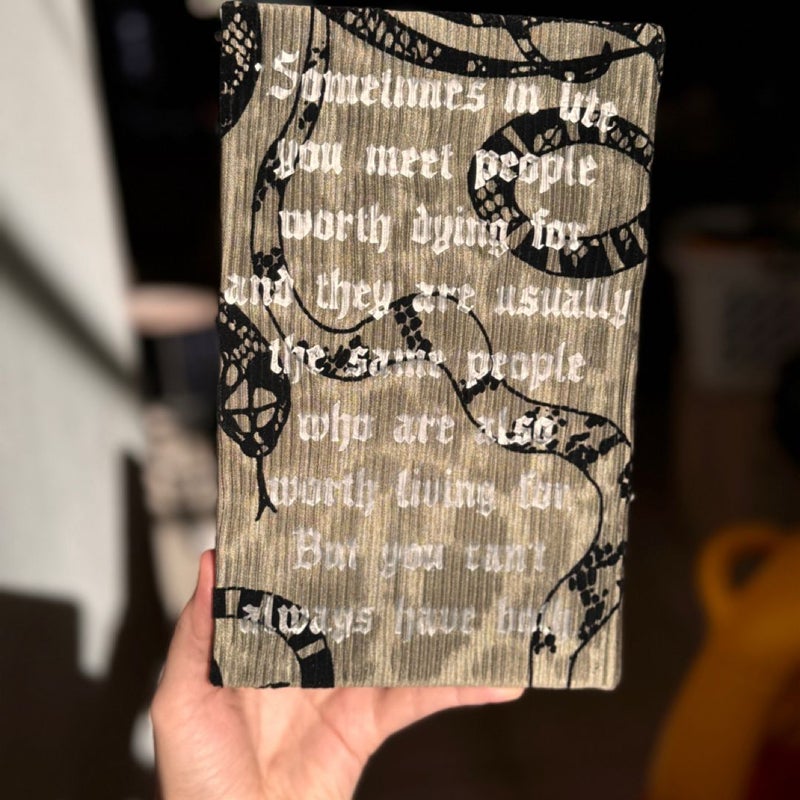 Sometimes in life
you meet people
worth dying for
and they are usually
the same people
who are also
worth living for.
But you can't
always have both.